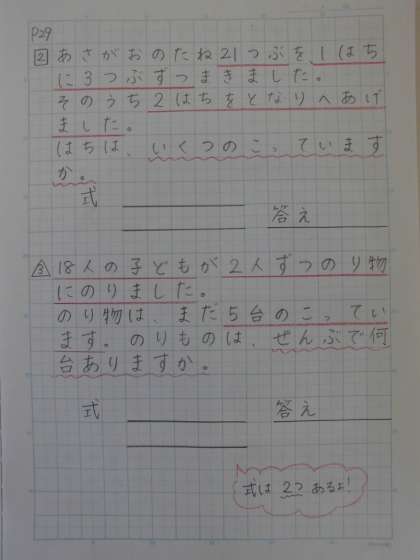 P29
2 あさがおのたね21つぶを、1はち
に3つぶずつまきました。
そのうち2はちをとなりへあげ
ました。
はちは、いくつのこっています
か。
式
答え
3 18人の子どもが2人ずつのり物
にのりました。
のり物は、まだ5台のこってい
ます。のりものは、ぜんぶで何
台ありますか。
式
答え
式は2つあるよ!